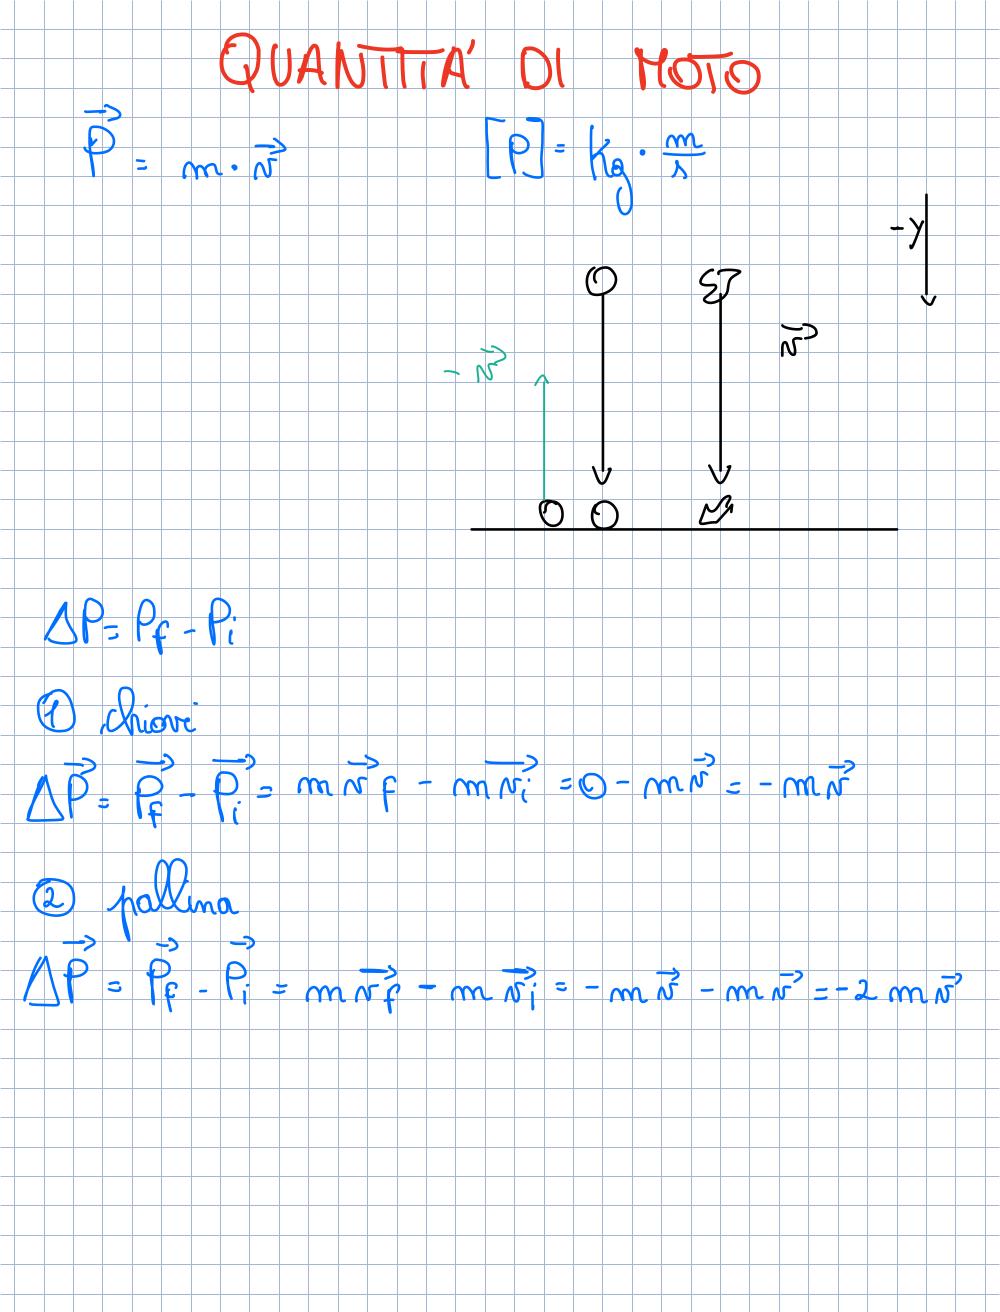 QUANTITÀ DI MOTO
P⃗ = m · v⃗
[P] = kg · m/s
-y
v⃗
- v⃗
ΔP = Pf - Pi
① chiavi
ΔP⃗ = P⃗f - P⃗i = m v⃗f - m v⃗i = 0 - m v⃗ = - m v⃗
② pallina
ΔP⃗ = P⃗f - P⃗i = m v⃗f - m v⃗i = - m v⃗ - m v⃗ = - 2 m v⃗